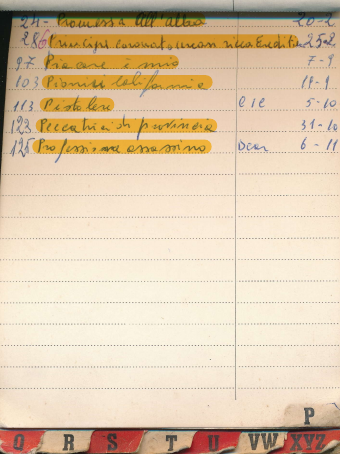 24 - Promessa all'alba 20-2
286 Principe coronato cercasi ricca Ereditiera 25-2
97 Piacere è mio 7-9
103 Pionieri California 19-9
113 Pistolero CIC 5-10
123 Peccatrici di provincia 31-10
125 Professione assassino Dear 6-11
P
Q R S T U VW XYZ